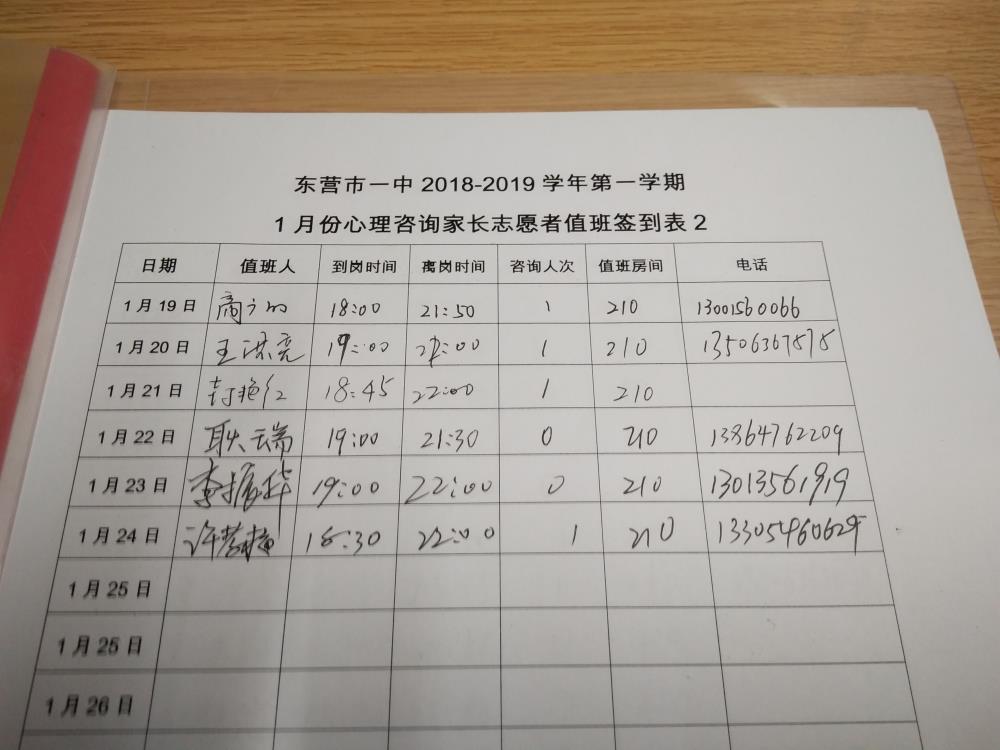 东营市一中 2018-2019 学年第一学期
1 月份心理咨询家长志愿者值班签到表 2
日期 值班人 到岗时间 离岗时间 咨询人次 值班房间 电话
1 月 19 日 18:00 21:50 1 210 13001560066
1 月 20 日 王洪亮 19:00 22:00 1 210 13506367878
1 月 21 日 封艳红 18:45 22:00 1 210
1 月 22 日 耿云瑞 19:00 21:30 0 210 13864762209
1 月 23 日 李振华 19:00 22:00 0 210 13013561919
1 月 24 日 18:30 22:00 1 210 13305460629
1 月 25 日
1 月 25 日
1 月 26 日